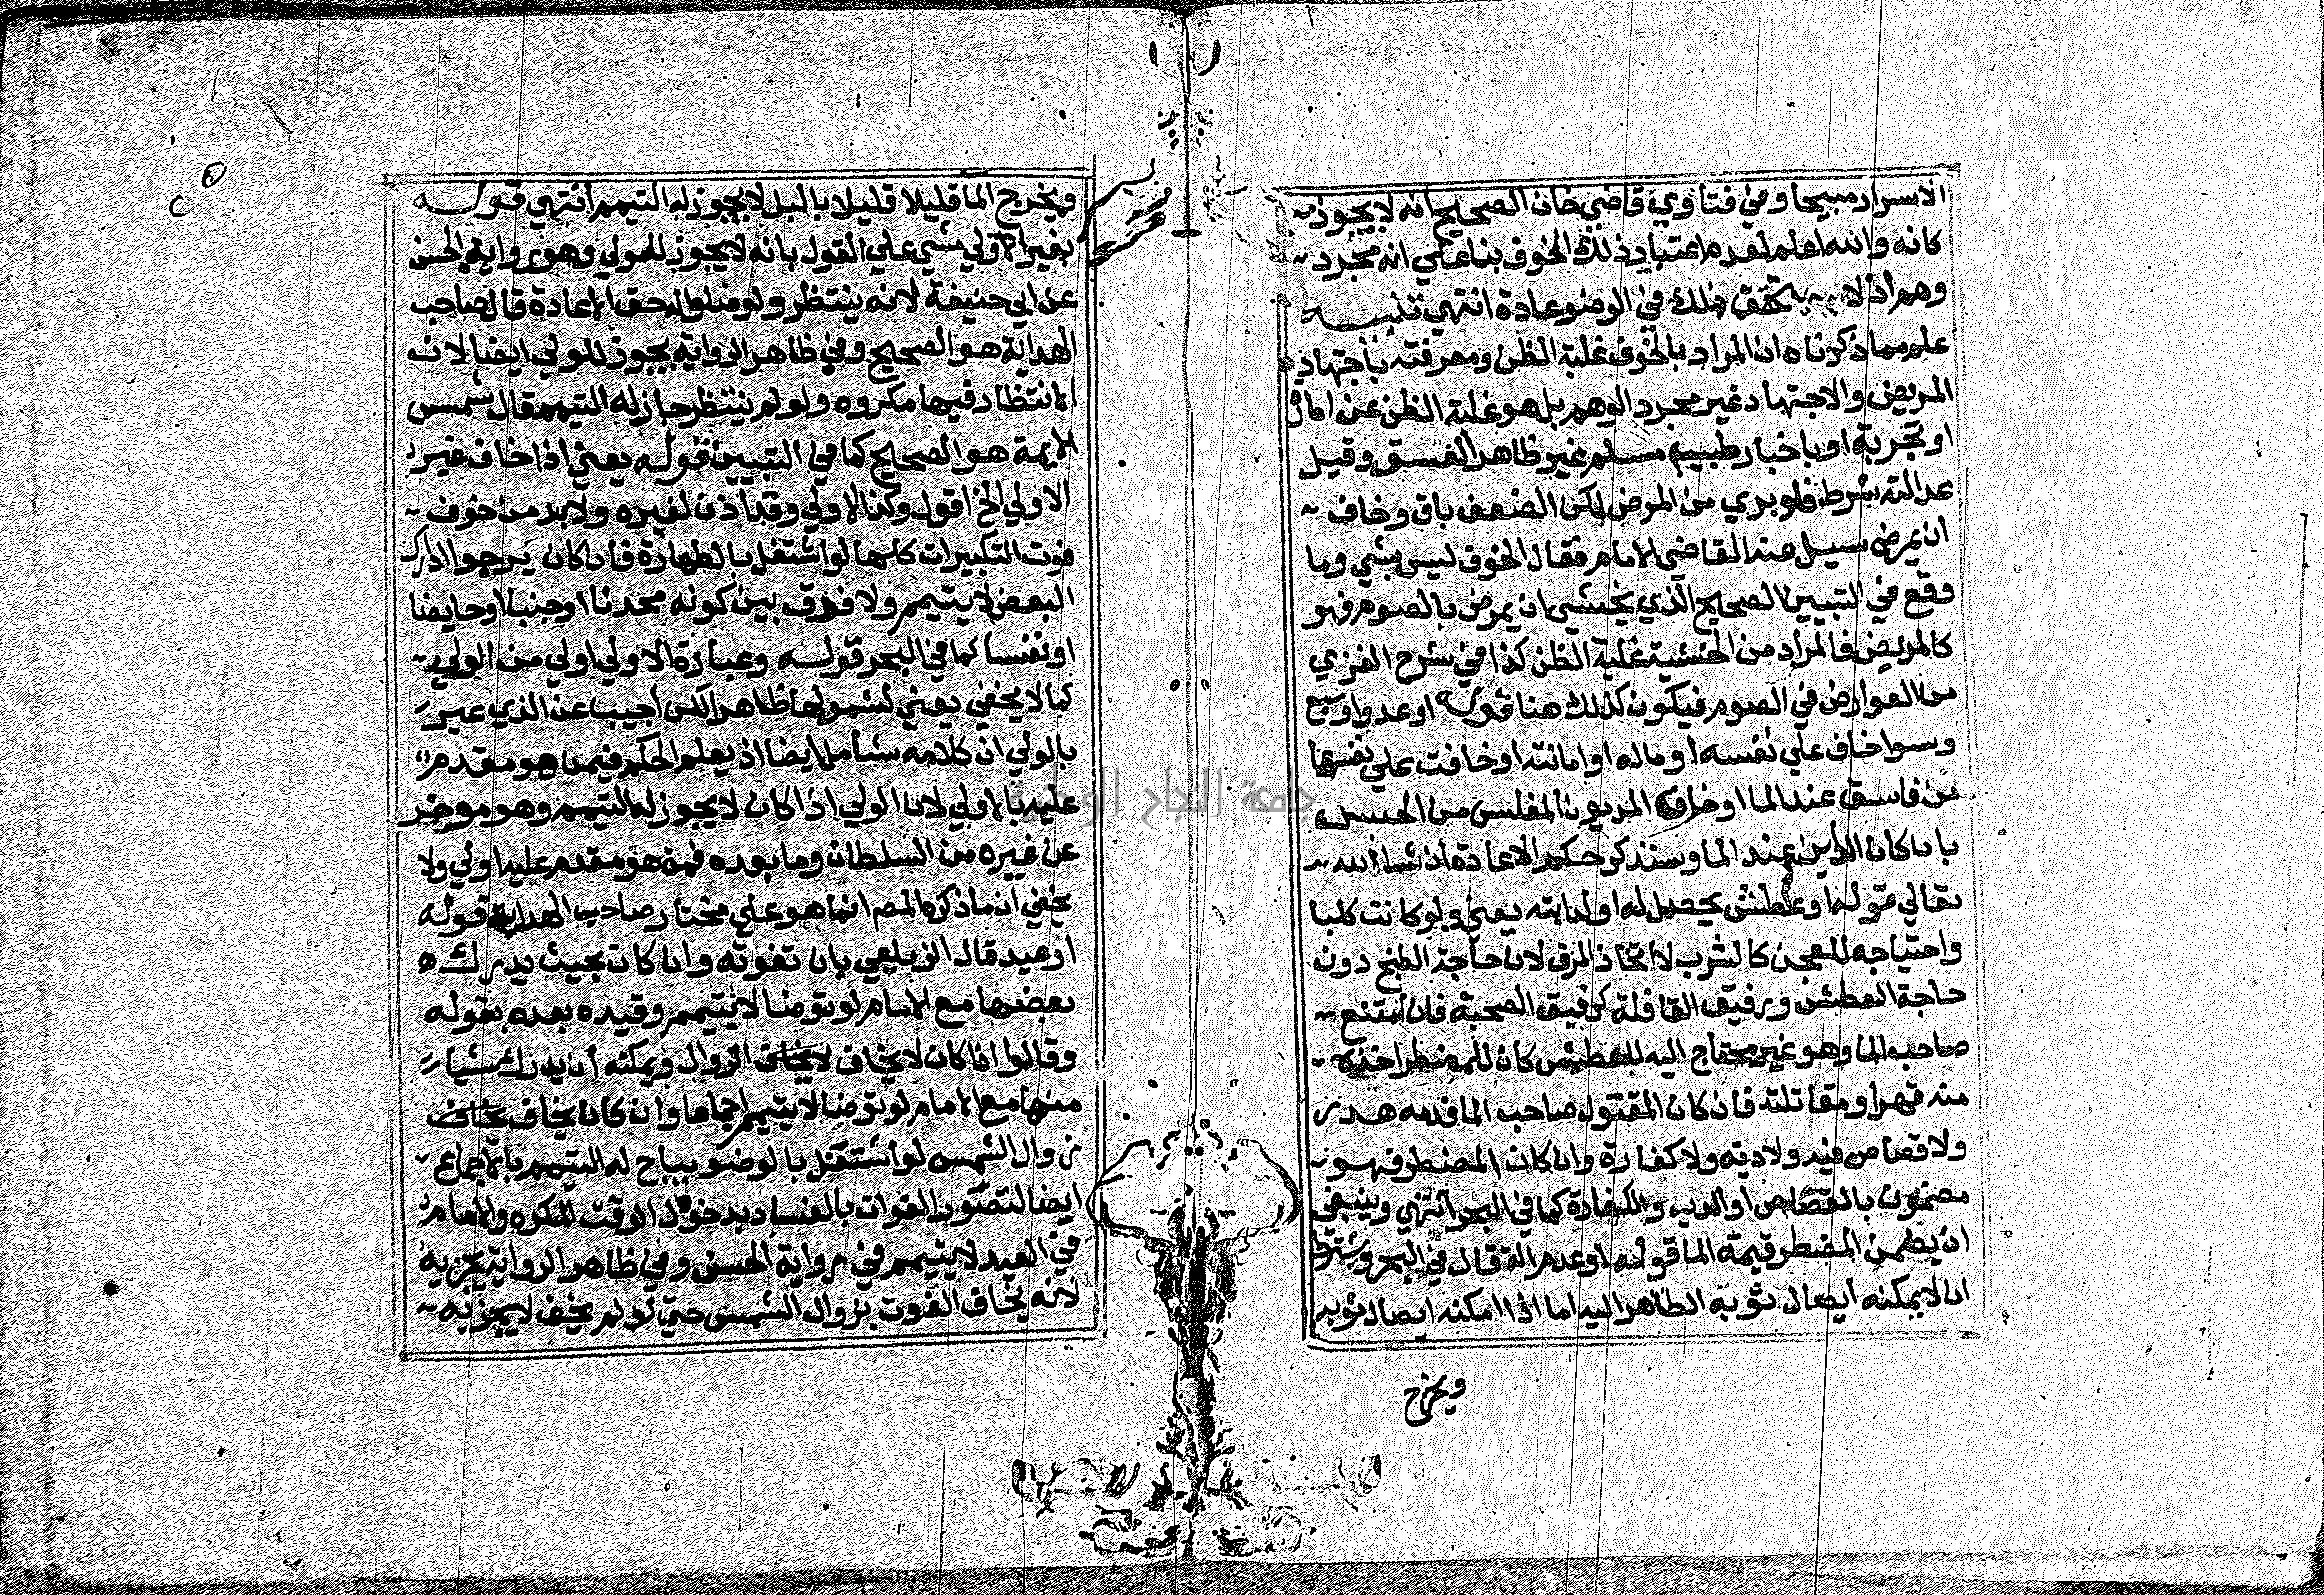 الاسرار مبيحا وفي فتاوي قاضي خان الصحيح انه لا يجوز
كانه والله اعلم لعدم اعتبار ذلك الخوف بناعلي انه مجرد
وهم اذ لا يتحقق ذلك في الوضو عادة انتهي تنبيه
علم مما ذكرناه ان المراد بالخوف غلبة الظن ومعرفته باجتهاد
المريض والاجتهاد غير مجرد الوهم بل هو غلبة الظن عن امارة
او تجربة او باخبار طبيب مسلم غير ظاهر الفسق وقيل
عدالته شرط فلو بري من المرض لكن الضعف باق وخاف
ان يمرض سيل عنه القاضي الامام فقال الخوف ليس بشي وما
وقع في التبيين الصحيح الذي يخشي ان يمرض بالصوم فهو
كالمريض فالمراد من الخشية غلبة الظن كذا في شرح الغزي
من العوارض في الصوم فيكون كذلك هنا قوله او عدو او سبع
وسوا خاف علي نفسه او ماله او امانته او خافت علي نفسها
من فاسق عند الما او خاف المديون المفلس من الحبس
بان كان الداين عند الما وسنذكر حكم الاعادة ان شا الله
تعالي قوله او عطش يحصل له او لدابته يعني ولو كانت كلبا
واحتياجه للعجن كالشرب لا اتخاذ المرق لان حاجة الطبخ دون
حاجة العطش ورفيق القافلة كرفيق الصحبة فان امتنع
صاحب الما وهو غير محتاج اليه للعطش كان للمضطر اخذه
منه قهرا ومقاتلته فان كان المقتول صاحب الما فدمه هدر
ولا قصاص فيه ولا دية ولا كفارة وان كان المضطر فهو
مضمون بالقصاص او الدية والكفارة كما في البحر انتهي وينبغي
ان يضمن المضطر قيمة الما قوله او عدم الة قال في البحر ويشترط
ان لا يمكنه ايصال ثوبه الطاهر اليه اما اذا امكنه ايصال ثوبه
ويخرج
ويخرج الما قليلا قليلا بالبل لا يجوز له التيمم انتهي قوله
بغير الاولي مشي علي القول بانه لا يجوز للولي وهو رواية الحسن
عن ابي حنيفة لانه ينتظر ولو صلوا له حق الاعادة قال صاحب
الهداية هو الصحيح وفي ظاهر الرواية يجوز للولي ايضا لان
الانتظار فيها مكروه ولو لم ينتظر جاز له التيمم قال شمس
الايمة هو الصحيح كما في التبيين قوله يعني اذا خاف غير
الاولي الخ اقول وكذا الاولي وقد اذن لغيره ولا بد من خوف
فوت التكبيرات كلها لو اشتغل بالطهارة فان كان يرجوا ادراك
البعض لا يتيمم ولا فرق بين كونه محدثا او جنبا او حايضا
او نفسا كما في البحر قوله وعبارة الاولي اولي من الولي
كما لا يخفي يعني لشمولها ظاهرا لكن اجيب عن الذي عبر
بالولي ان كلامه شامل ايضا اذ يعلم الحكم فيمن هو مقدم
عليه بالاولي لان الولي اذا كان لا يجوز له التيمم وهو موخر
عن غيره من السلطان وما بعده فمن هو مقدم عليه اولي ولا
يخفي ان ما ذكره المص انما هو علي مختار صاحب الهداية قوله
او عيد قال الزيلعي بان تفوته وان كان بحيث يدرك
بعضها مع الامام لو توضا لا يتيمم وقيده بعده بقوله
وقالوا ان كان لا يخاف لا يخاف الزوال ويمكنه ان يدرك شيا
منها مع الامام لو توضا لا يتيمم اجماعا وان كان يخاف يخاف
زوال الشمس لو اشتغل بالوضو يباح له التيمم بالاجماع
ايضا لتصور الفوات بالفساد بدخول الوقت المكروه والامام
في العيد لا يتيمم في رواية الحسن وفي ظاهر الرواية يجزيه
لانه يخاف الفوت بزوال الشمس حتي لو لم يخف لا يجزيه